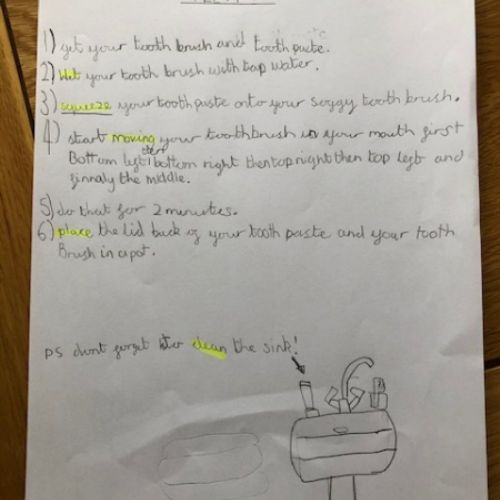 1) get your tooth brush and tooth paste.
2) Wet your tooth brush with tap water.
3) squeeze your tooth paste onto your soggy tooth brush.
4) start moving your toothbrush in your mouth first
Bottom left then bottom right then top right then top left and
finnaly the middle.
5) do that for 2 minutes.
6) place the lid back of your tooth paste and your tooth
Brush in a pot.
PS dont forget to clean the sink!